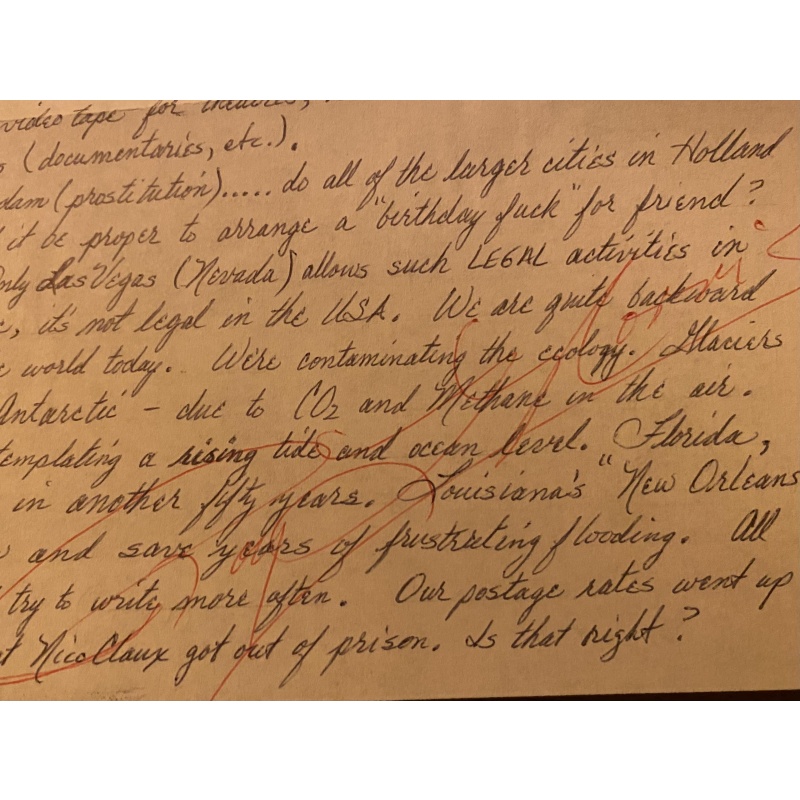 video tape for theatres,
(documentaries, etc.).
dam (prostitution)..... do all of the larger cities in Holland
it be proper to arrange a "birthday fuck" for friend?
Only Las Vegas (Nevada) allows such LEGAL activities in
, it's not legal in the USA. We are quite backward
world today. We're contaminating the ecology. Glaciers
Antarctic - due to CO2 and Methane in the air.
templating a rising tide and ocean level. Florida,
in another fifty years. Louisiana's "New Orleans
and save years of frustrating flooding. All
try to write more often. Our postage rates went up
Nico Claux got out of prison. Is that right?